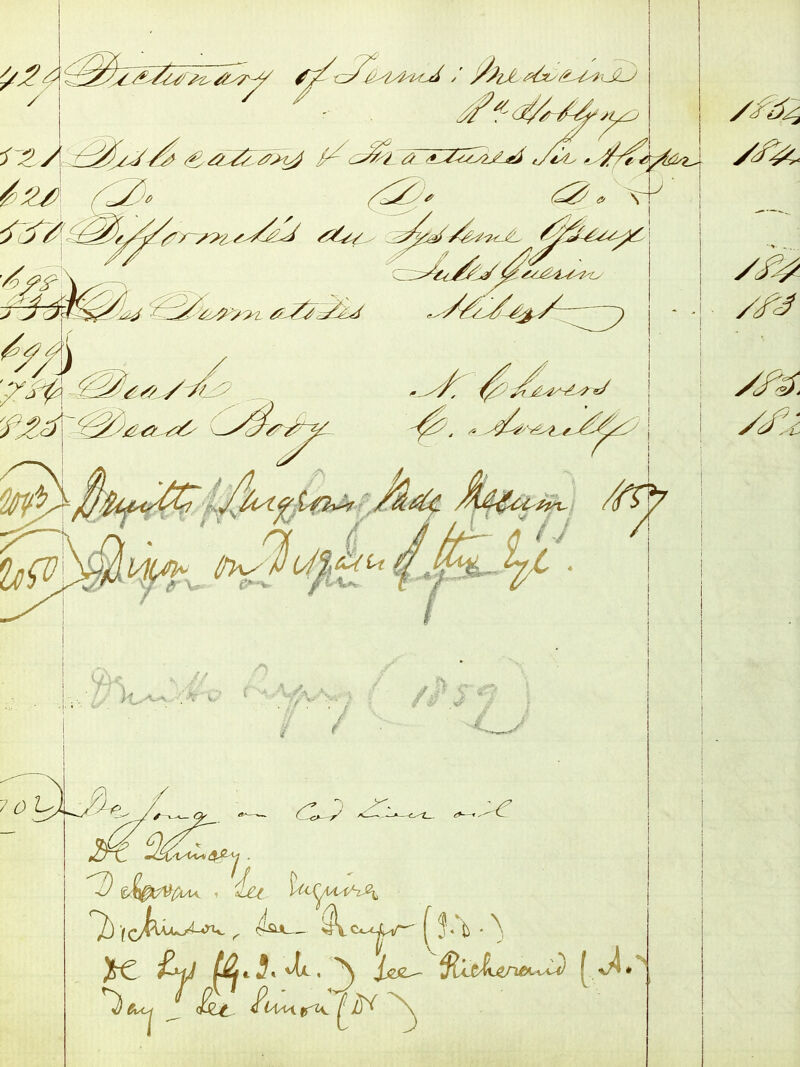 429 Dictionary of Terms : Medicine
Rd. Hoblyn 1854
521 Dislocations & Fractures Sir A Cooper 184
620 Do Do Do
550 Difformités du Systeme Osseux
Jules Guerin 184
698
535 Des Dermatoses Alibert 183
699
786 Death N. Chevers 185
825 Dead Body C. Averill 182
2043 Druitts Surgeons Vade Mecum 1857
Druitts Surgery (1857)
2050 Dixon on Diseases of the Eye.
Dixon on the Eye
Druitts Surgery (1859)
702 De Jong on Cod Liver oil
De Quincey.
Delavan. See Enquirer
Dickinson, See (P.D.)
De Lys (G. J. M.) See Richerand (A.)
Day - See Simon (Dr)